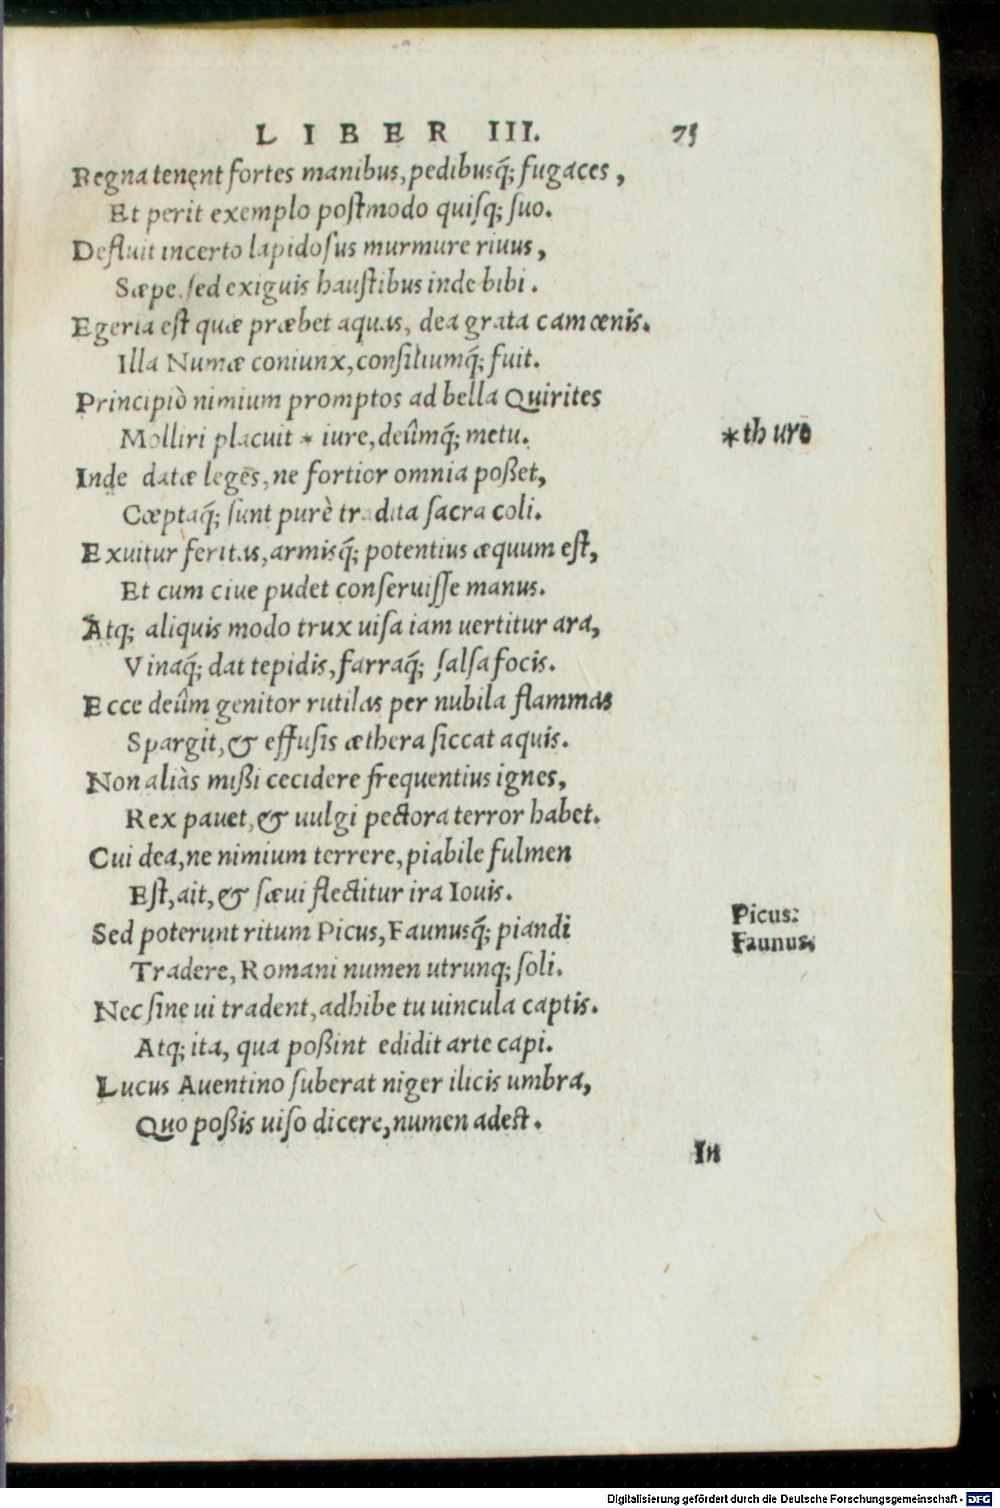 LIBER III. 75
Regna tenent fortes manibus, pedibusq́; fugaces,
Et perit exemplo postmodo quisq; suo.
Defluit incerto lapidosus murmure riuus,
Sæpe sed exiguis haustibus inde bibi.
Egeria est quæ præbet aquas, dea grata camœnis.
Illa Numæ coniunx, consiliumq́; fuit.
Principiò nimium promptos ad bella Quirites
Molliri placuit * iure, deûmq́; metu.
*thure
Inde datæ leges, ne fortior omnia poßet,
Cœptaq́; sunt purè tradita sacra coli.
Exuitur feritas, armisq́; potentius æquum est,
Et cum ciue pudet conseruisse manus.
Atq; aliquis modo trux uisa iam uertitur ara,
Vinaq́; dat tepidis, farraq́; salsa focis.
Ecce deûm genitor rutilas per nubila flammas
Spargit, & effusis æthera siccat aquis.
Non aliàs mißi cecidere frequentius ignes,
Rex pauet, & uulgi pectora terror habet.
Cui dea, ne nimium terrere, piabile fulmen
Est, ait, & sæui flectitur ira Iouis.
Sed poterunt ritum Picus, Faunusq́; piandi
Picus:
Faunus.
Tradere, Romani numen utrunq; soli.
Nec sine ui tradent, adhibe tu uincula captis.
Atq; ita, qua poßint edidit arte capi.
Lucus Auentino suberat niger ilicis umbra,
Quo poßis uiso dicere, numen adest.
In
Digitalisierung gefördert durch die Deutsche Forschungsgemeinschaft - DFG